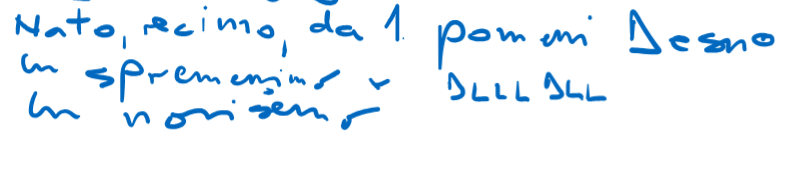 Nato, recimo, da 1 pomeni Desno
in spremenimo v DLLLDLL
in narišemo